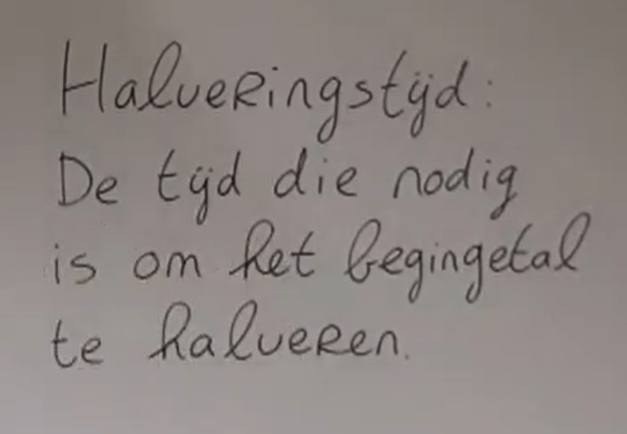 Halveringstijd:
De tijd die nodig
is om het begingetal
te halveren.